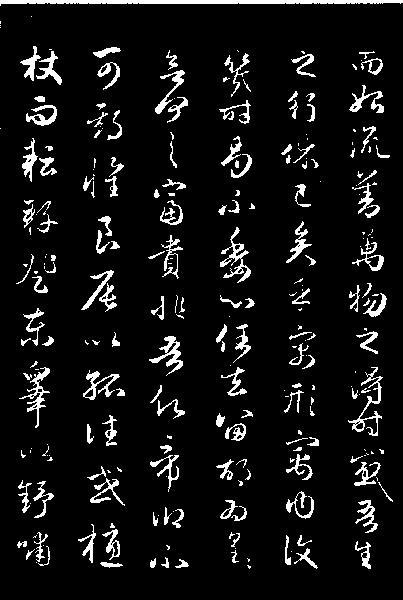 而始流善萬物之得時感吾生
之行休已矣乎寓形宇內復
幾時曷不委心任去留胡為遑々
欲何之富貴非吾願帝鄉不
可期懷良辰以孤往或植
杖而耘耔登東皋以舒嘯